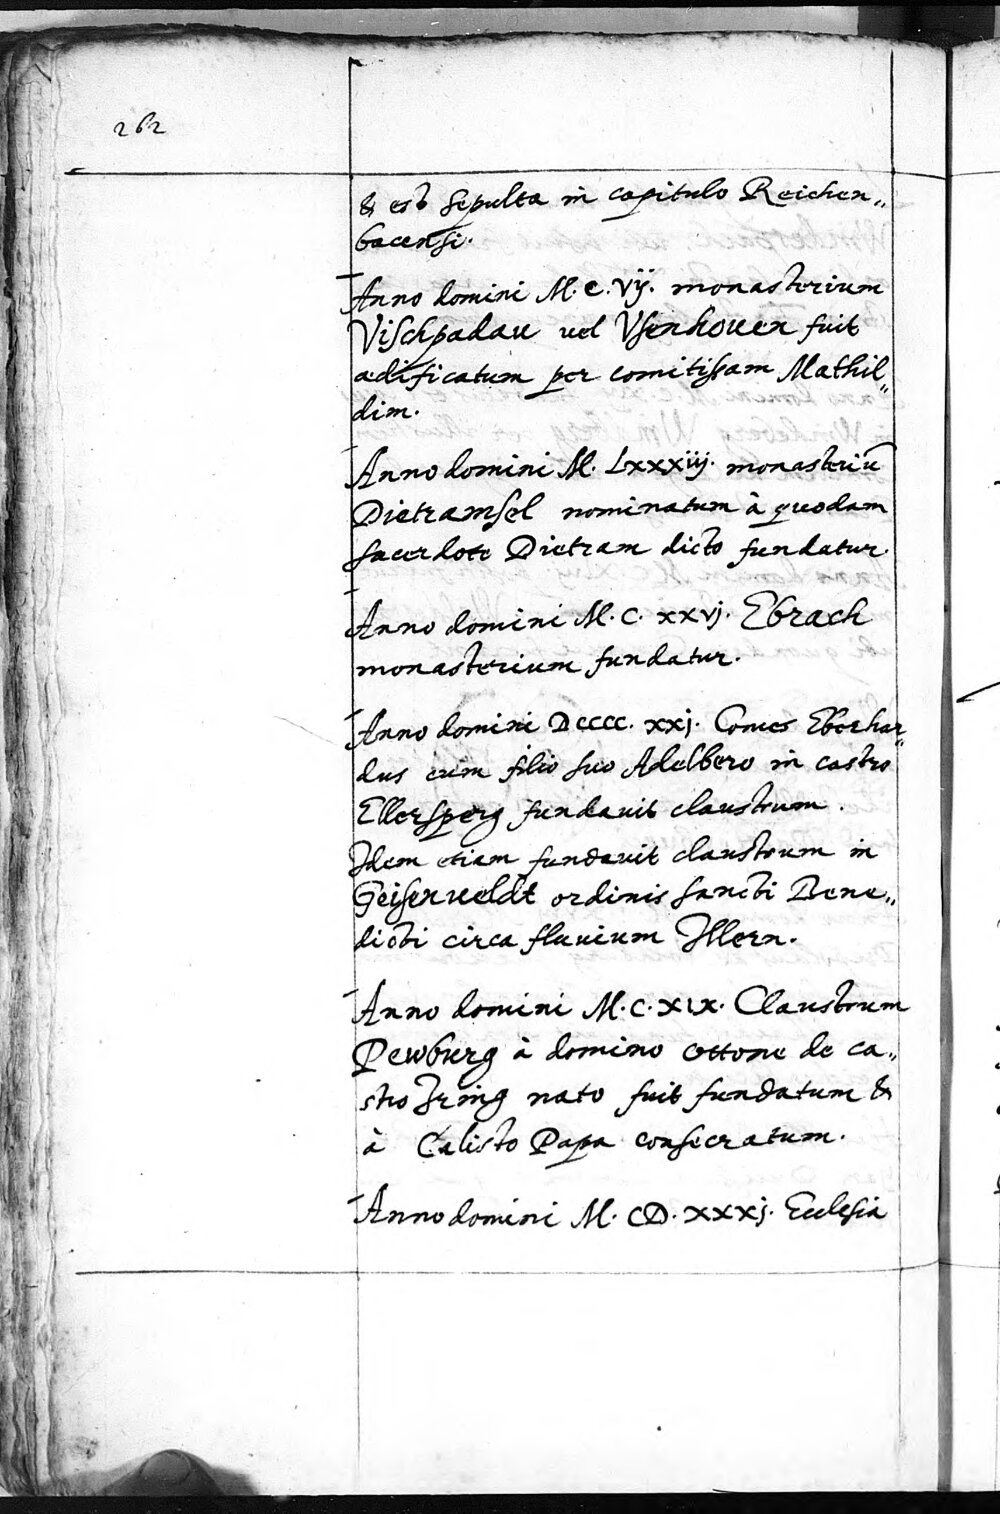 262
& est sepulta in capitulo Reichen„
bacensi.
Anno domini M. C. Vij. monasterium
Vischpadau uel Vsenhouen fuit
ædificatum per comitissam Mathil„
dim.
Anno domini M. Lxxxiiij. monasteriū
Dietramsel nominatum à quodam
sacerdote Dietram dicto fundatur.
Anno domini M. C. xxvj. Ebrach
monasterium fundatur.
Anno domini Dcccc. xxj. Comes Eberhar„
dus cum filio suo Adelbero in castro
Ellersperg fundauit claustrum.
Idem etiam fundauit claustrum in
Geisenueldt ordinis sancti Bene„
dicti circa fluuium Illern.
Anno domini M. C. XIX. Claustrum
Pewburg à domino Ottone de ca„
stro Iring nato fuit fundatum &
à Calisto Papa consecratum.
Anno domini M. CD. xxxj. Ecclesia